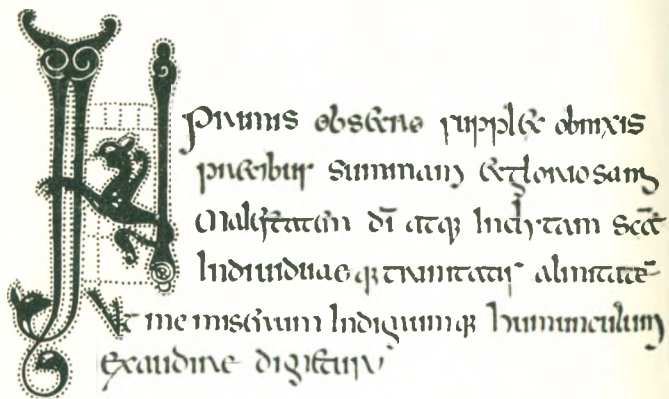 IN primis obsecro supplex obnixis
precibus summam et gloriosam
Maiestatem dī atq; Inclytam scae
Indiuiduaeq; trinitatis almitatē
Vt me miserum Indignumq; humunculum
exaudire digneris